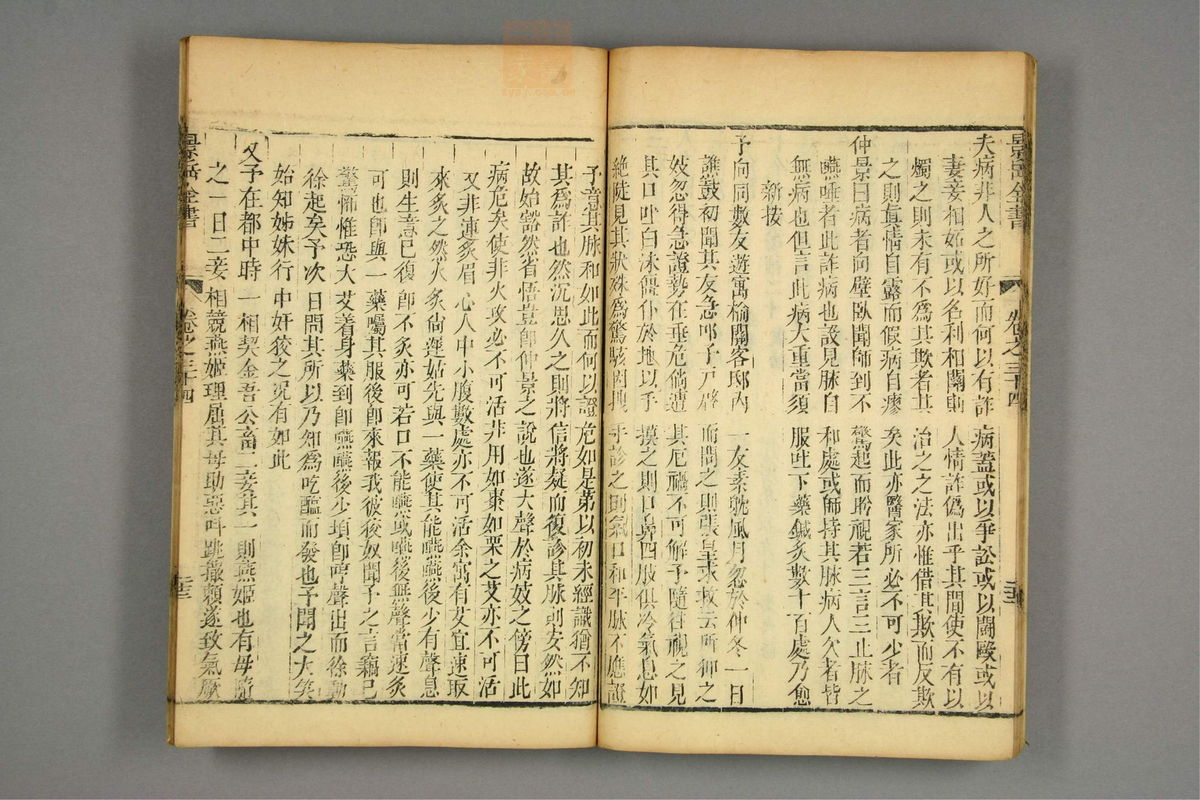 景岳全書
卷之三十四
夫病非人之所好而何以有詐病蓋或以爭訟或以鬬毆或以
妻妾相妬或以名利相關則人情詐偽出乎其間使不有以
燭之則未有不為其欺者其治之之法亦惟借其欺而反欺
之則真情自露而假病自瘳矣此亦醫家所必不可少者
仲景曰病者向壁臥聞師到不驚起而盻視若三言三止脉之
嚥唾者此詐病也設見脉自和處或師持其脉病人欠者皆
無病也但言此病大重當須服吐下藥鍼灸數十百處乃愈
新按
予向同數友遊寓榆關客邸內一友素耽風月忽於仲冬一日
譙鼓初聞其友急叩予戶啓而問之則張皇求救云所御之
妓忽得急證勢在垂危倘遭其厄禍不可解予隨往視之見
其口吐白沫僵仆於地以手摸之則口鼻四肢俱冷氣息如
絕陡見其狀殊為驚駭因拽手診之則氣口和平脉不應證
予意其脉和如此而何以證危如是第以初未經識猶不知
其為詐也然沉思久之則將信將疑而復診其脉則安然如
故始豁然省悟豈卽仲景之說也遂大聲於病妓之傍曰此
病危矣使非火攻必不可活非用如棗如栗之艾亦不可活
又非連灸眉心人中小腹數處亦不可活余寓有艾宜速取
來灸之然火灸尙遲姑先與一藥使其能嚥嚥後少有聲息
則生意已復卽不灸亦可若口不能嚥或嚥後無聲當速灸
可也卽與一藥囑其服後卽來報我彼狡奴聞予之言竊已
驚怖惟恐大艾着身藥到卽嚥嚥後少頃卽哼聲出而徐動
徐起矣予次日問其所以乃知為吃醋而發也予聞之大笑
始知姊妹行中奸狡之況有如此
又予在都中時一相契金吾公畜二妾其一則燕姬也有母隨
之一日二妾相競燕姬理屈其母助惡叫跳撒賴遂致氣厥
景岳全書
卷之三十四